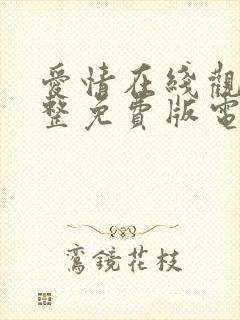 愛情在线觀
整免費版電
鸞鏡花枝